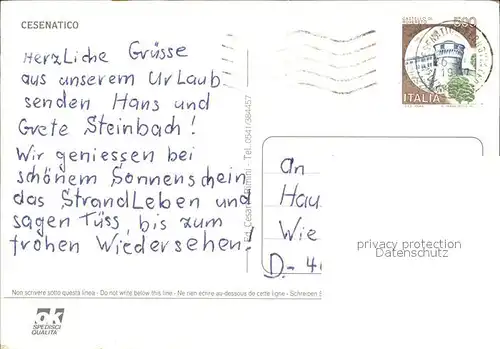 CESENATICO
Herzliche Grüsse
aus unserem Urlaub
senden Hans und
Grete Steinbach!
Wir geniessen bei
schönem Sonnenschein
das Strandleben und
sagen Tüss, bis zum
frohen Wiedersehen!
CASTELLO DI
ROVERETO
500
ITALIA
Tel. 0541/384457
An
Hau
Wie
D.- 4
privacy protection
Datenschutz
Non scrivere sotto questa linea - Do not write below this line - Ne rien ecrire au-dessous de cette ligne - Schreiben S
OK
SPEDISCI
QUALITÀ